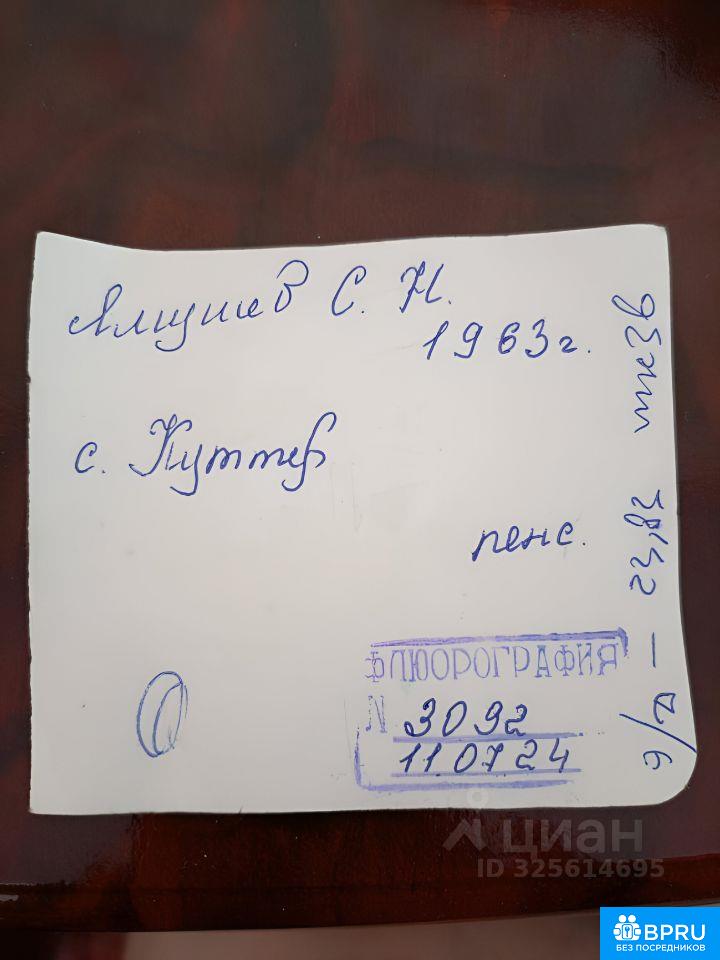 С. Н.
1963г.
с. Куттер
пенс.
ФЛЮОРОГРАФИЯ
N 3092
11.07.24
б/д —
циан
ID 325614695
BPRU
БЕЗ ПОСРЕДНИКОВ